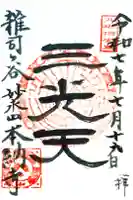 令和七年七月十六日 拝
三光天
雑司ヶ谷
本納寺